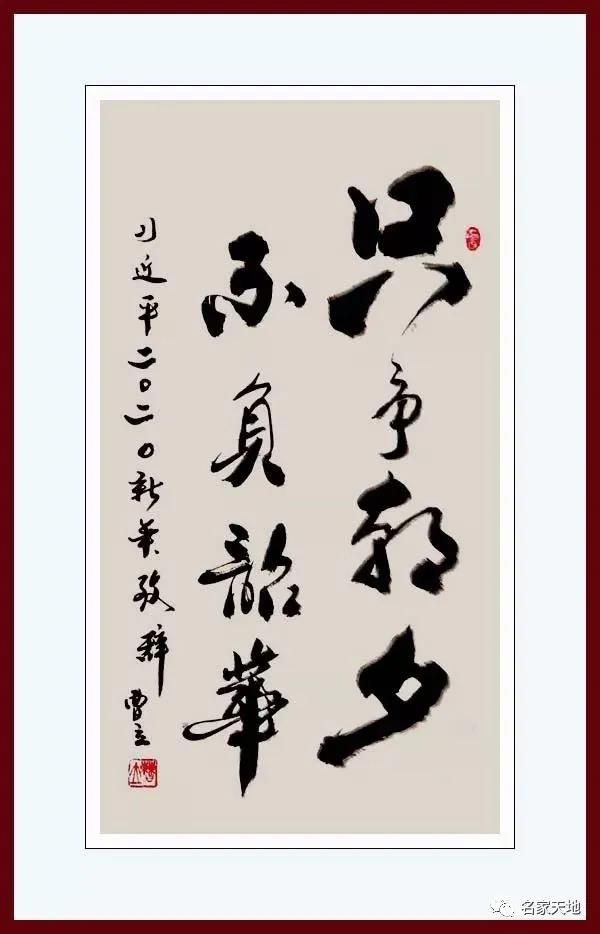 只争朝夕
不负韶華
习近平二〇二〇新年致辞
曹立
名家天地